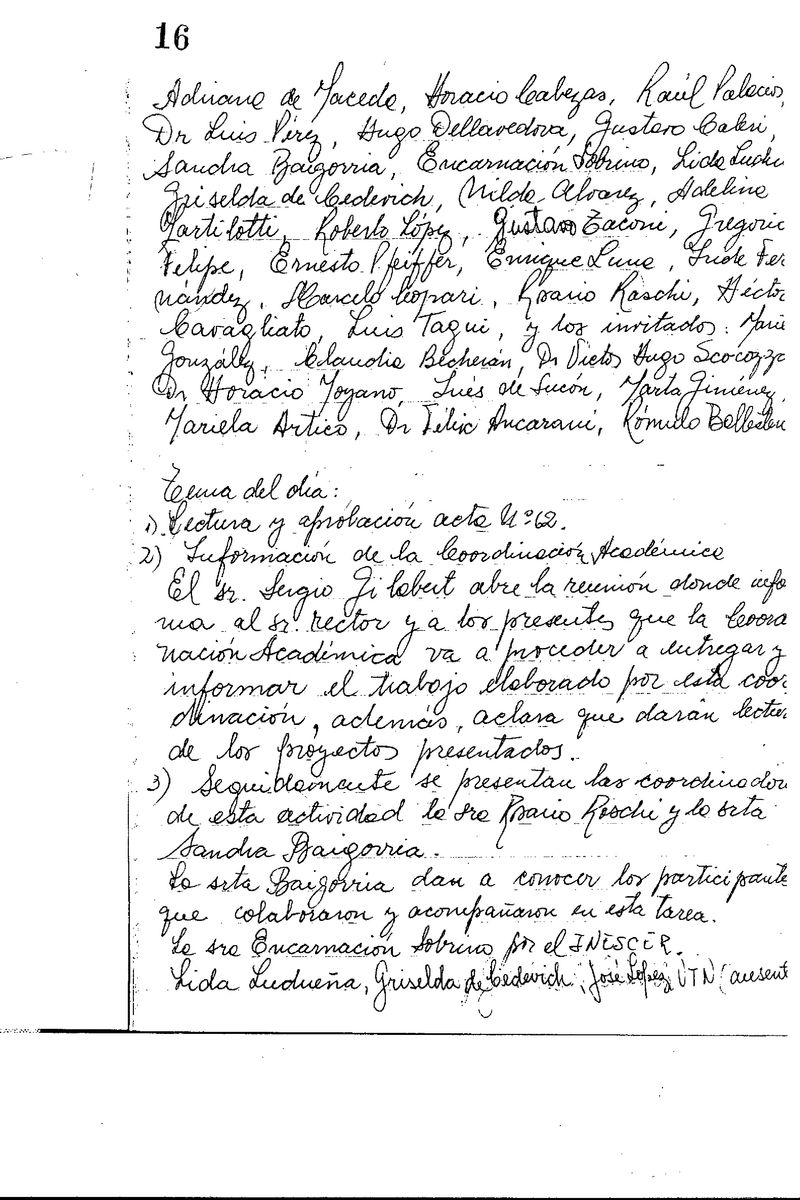 16
Adriana de Macedo, Horacio Cabezas, Raúl Palacios,
Dr Luis Pérez, Hugo Dellavedova, Gustavo Caleri,
Sandra Baigorria, Encarnación Sobrino, Lida Ludu
Griselda de Cederich, Nilda Alvarez, Adelina
Martilotti, Roberto López, Gustavo Zaconi, Gregorio
Felipe, Ernesto Pfeiffer, Enrique Luna, Inde Fer
nández, Marcelo Copari, Rosario Raschi, Héctor
Cavagliato, Luis Tagni, y los invitados: Marie
González, Claudia Becherán, Dr Victor Hugo Scocozza
Dr Horacio Moyano, Inés de Sucón, Marta Giménez,
Mariela Artico, Dr Félix Ancarani, Rómulo
Tema del día:
1) Lectura y aprobación acta Nº 62.
2) Información de la Coordinación Académica
El sr. Sergio Gilabert abre la reunión donde info
ma al sr. rector y a los presentes que la Coord
nación Académica va a proceder a entregar y
informar el trabajo elaborado por esta coor
dinación, además, aclara que darán lectu
de los proyectos presentados.
3) Seguidamente se presentan las coordinador
de esta actividad la sra Rosario Roschi y la srta
Sandra Baigorria.
La srta Baigorria dan a conocer los participante
que colaboraron y acompañaron en esta tarea.
La sra Encarnación Sobrino por el INESCER.
Lida Ludueña, Griselda de Cederich, José López UTN (ausent